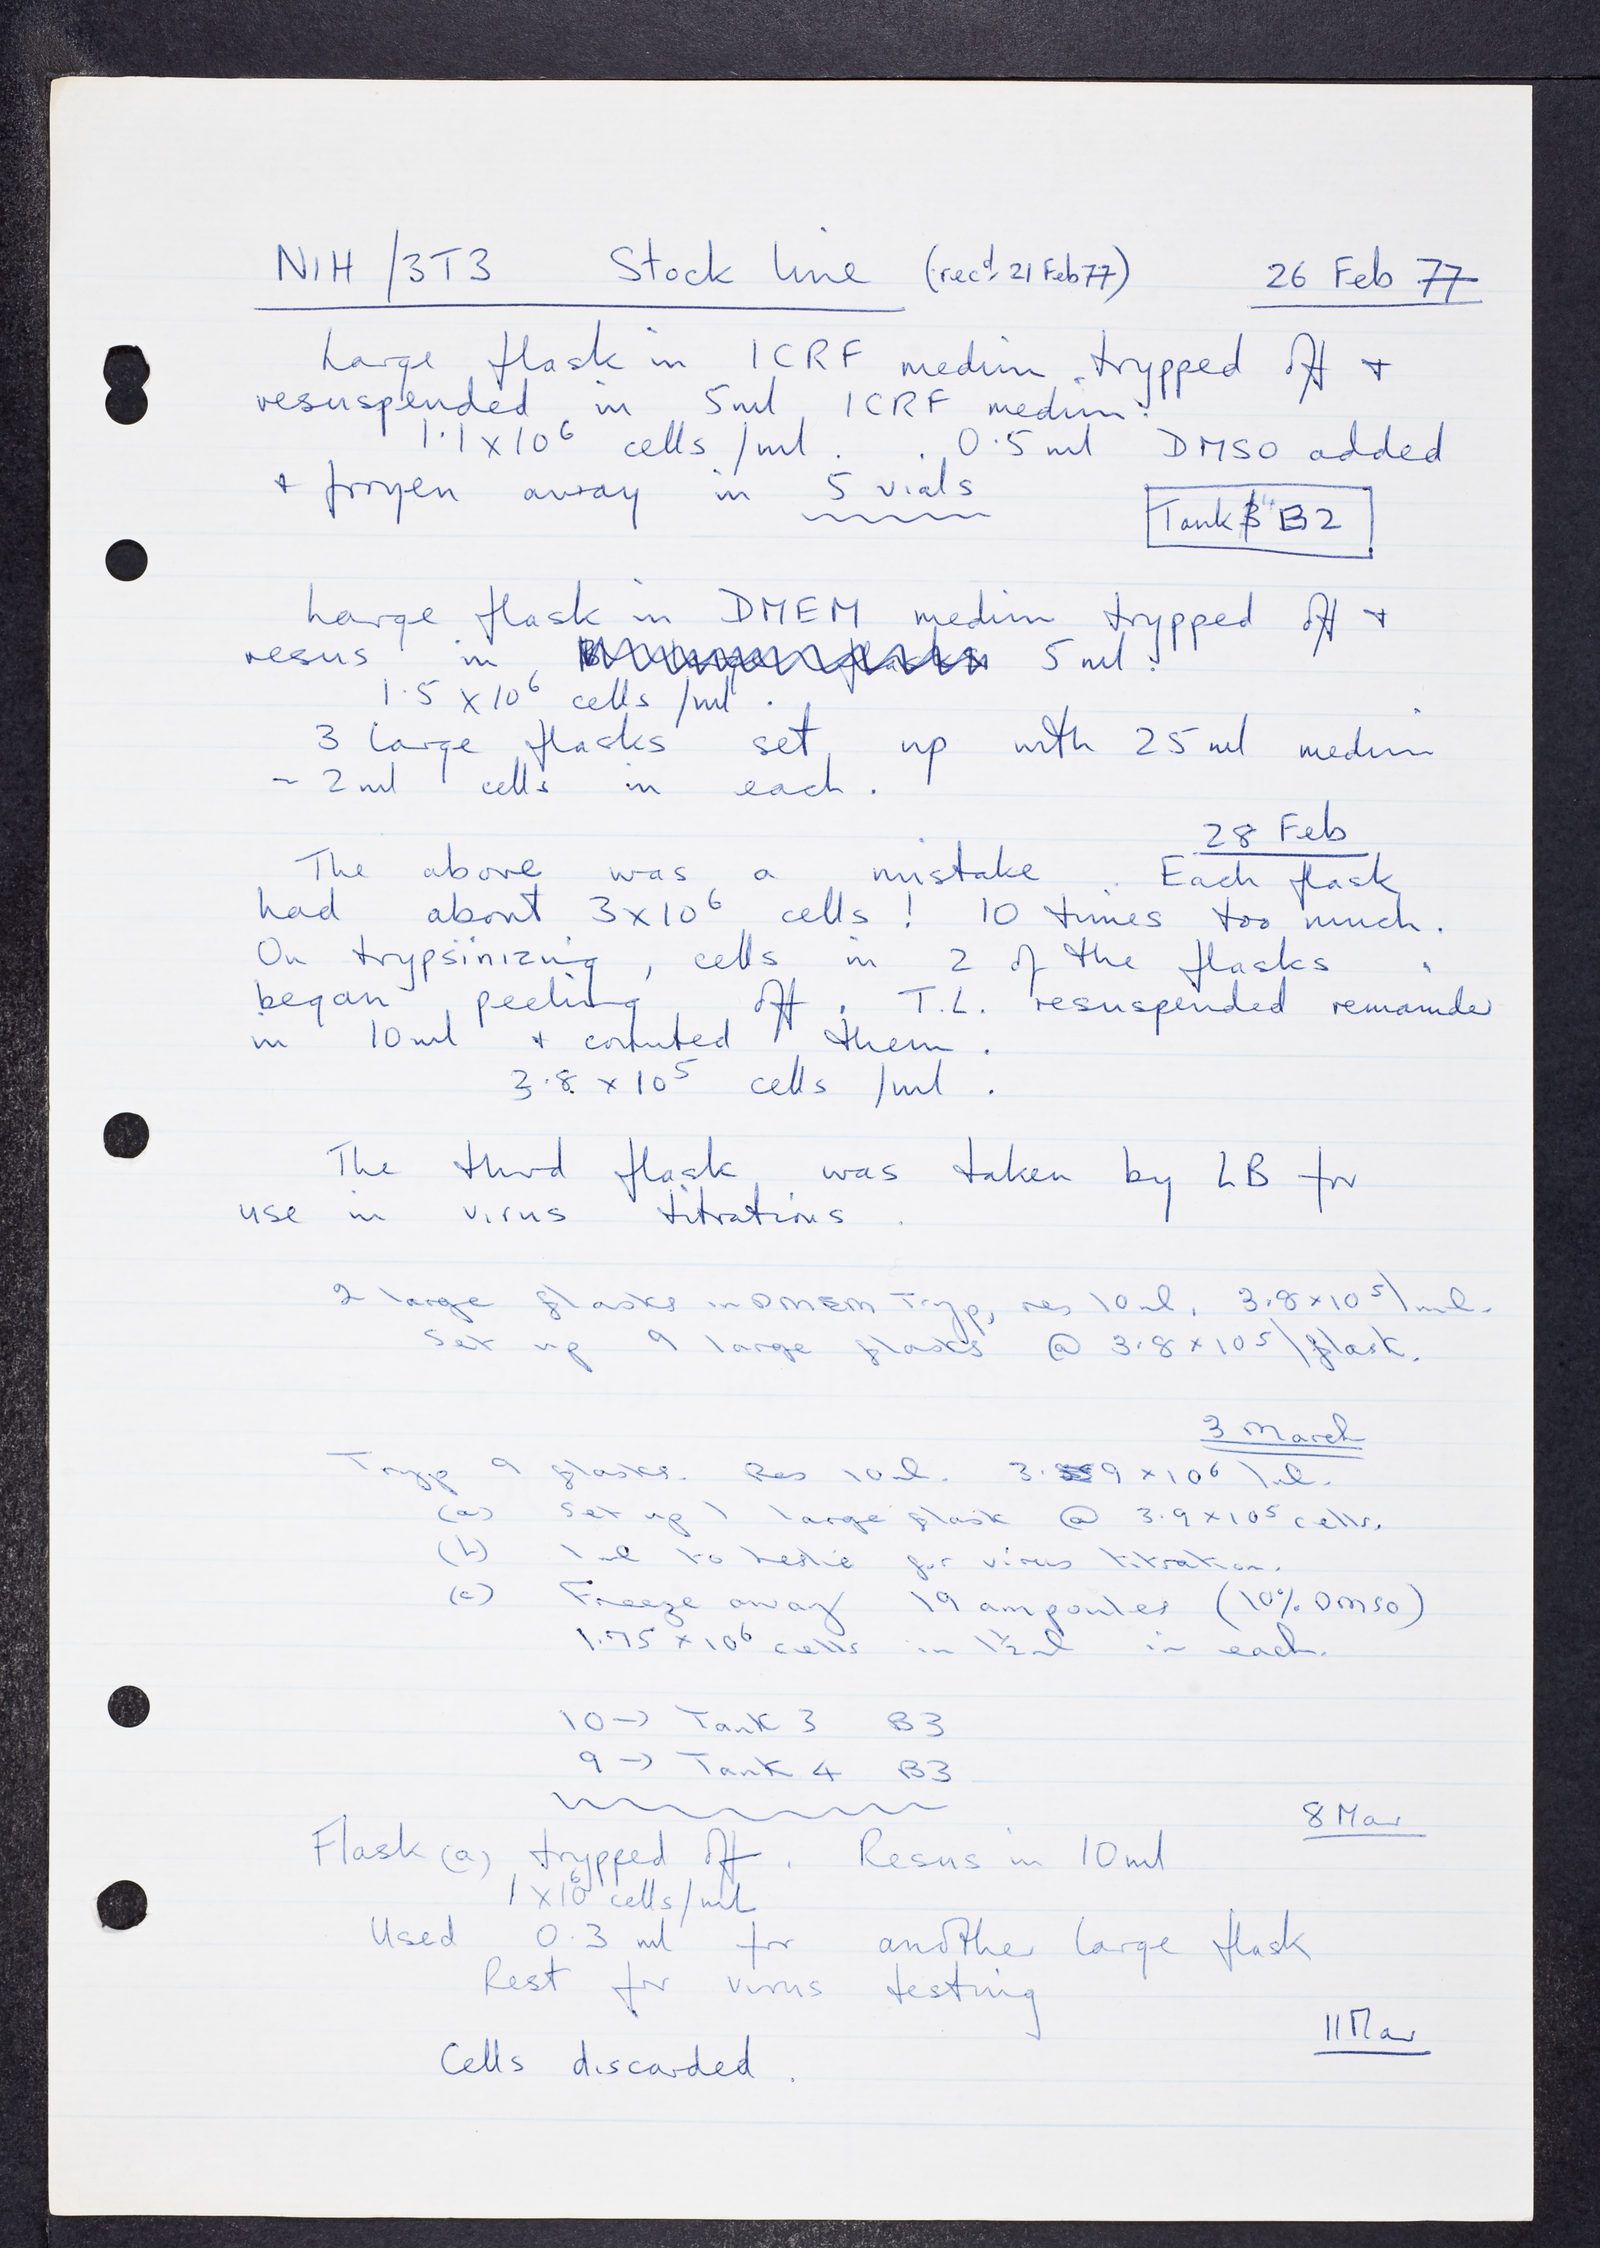 NIH/3T3 Stock line (recd. 21 Feb 77) 26 Feb 77
Large flask in ICRF medium trypped off +
resuspended in 5ml ICRF medium.
1.1 x 10⁶ cells/ml. 0.5ml DMSO added
+ frozen away in 5 vials
Tank B2
Large flask in DMEM medium trypped off +
resus in 5ml.
1.5 x 10⁶ cells/ml.
3 large flasks set up with 25ml medium
~ 2ml cells in each.
28 Feb
The above was a mistake. Each flask
had about 3x10⁶ cells! 10 times too much.
On trypsinizing, cells in 2 of the flasks
began peeling off. T.L. resuspended remainder
in 10ml + counted them.
3.8 x 10⁵ cells/ml.
The third flask was taken by LB for
use in virus titrations.
2 large flasks in DMEM Tryp, res 10ml. 3.8x10⁵/ml.
Set up 9 large flasks @ 3.8x10⁵/flask.
3 March
Tryp 9 flasks. Res 10ml. 3.9 x 10⁶/ml.
(a) Set up 1 large flask @ 3.9x10⁵ cells.
(b) 1ml to Leslie for virus titration.
(c) Freeze away 19 ampoules (10% DMSO)
1.75 x 10⁶ cells in 1½ml in each.
10 → Tank 3 B3
9 → Tank 4 B3
8 Mar
Flask (a) trypped off. Resus in 10ml
1 x 10⁶ cells/ml
Used 0.3 ml for another large flask
Rest for virus testing
11 Mar
Cells discarded.